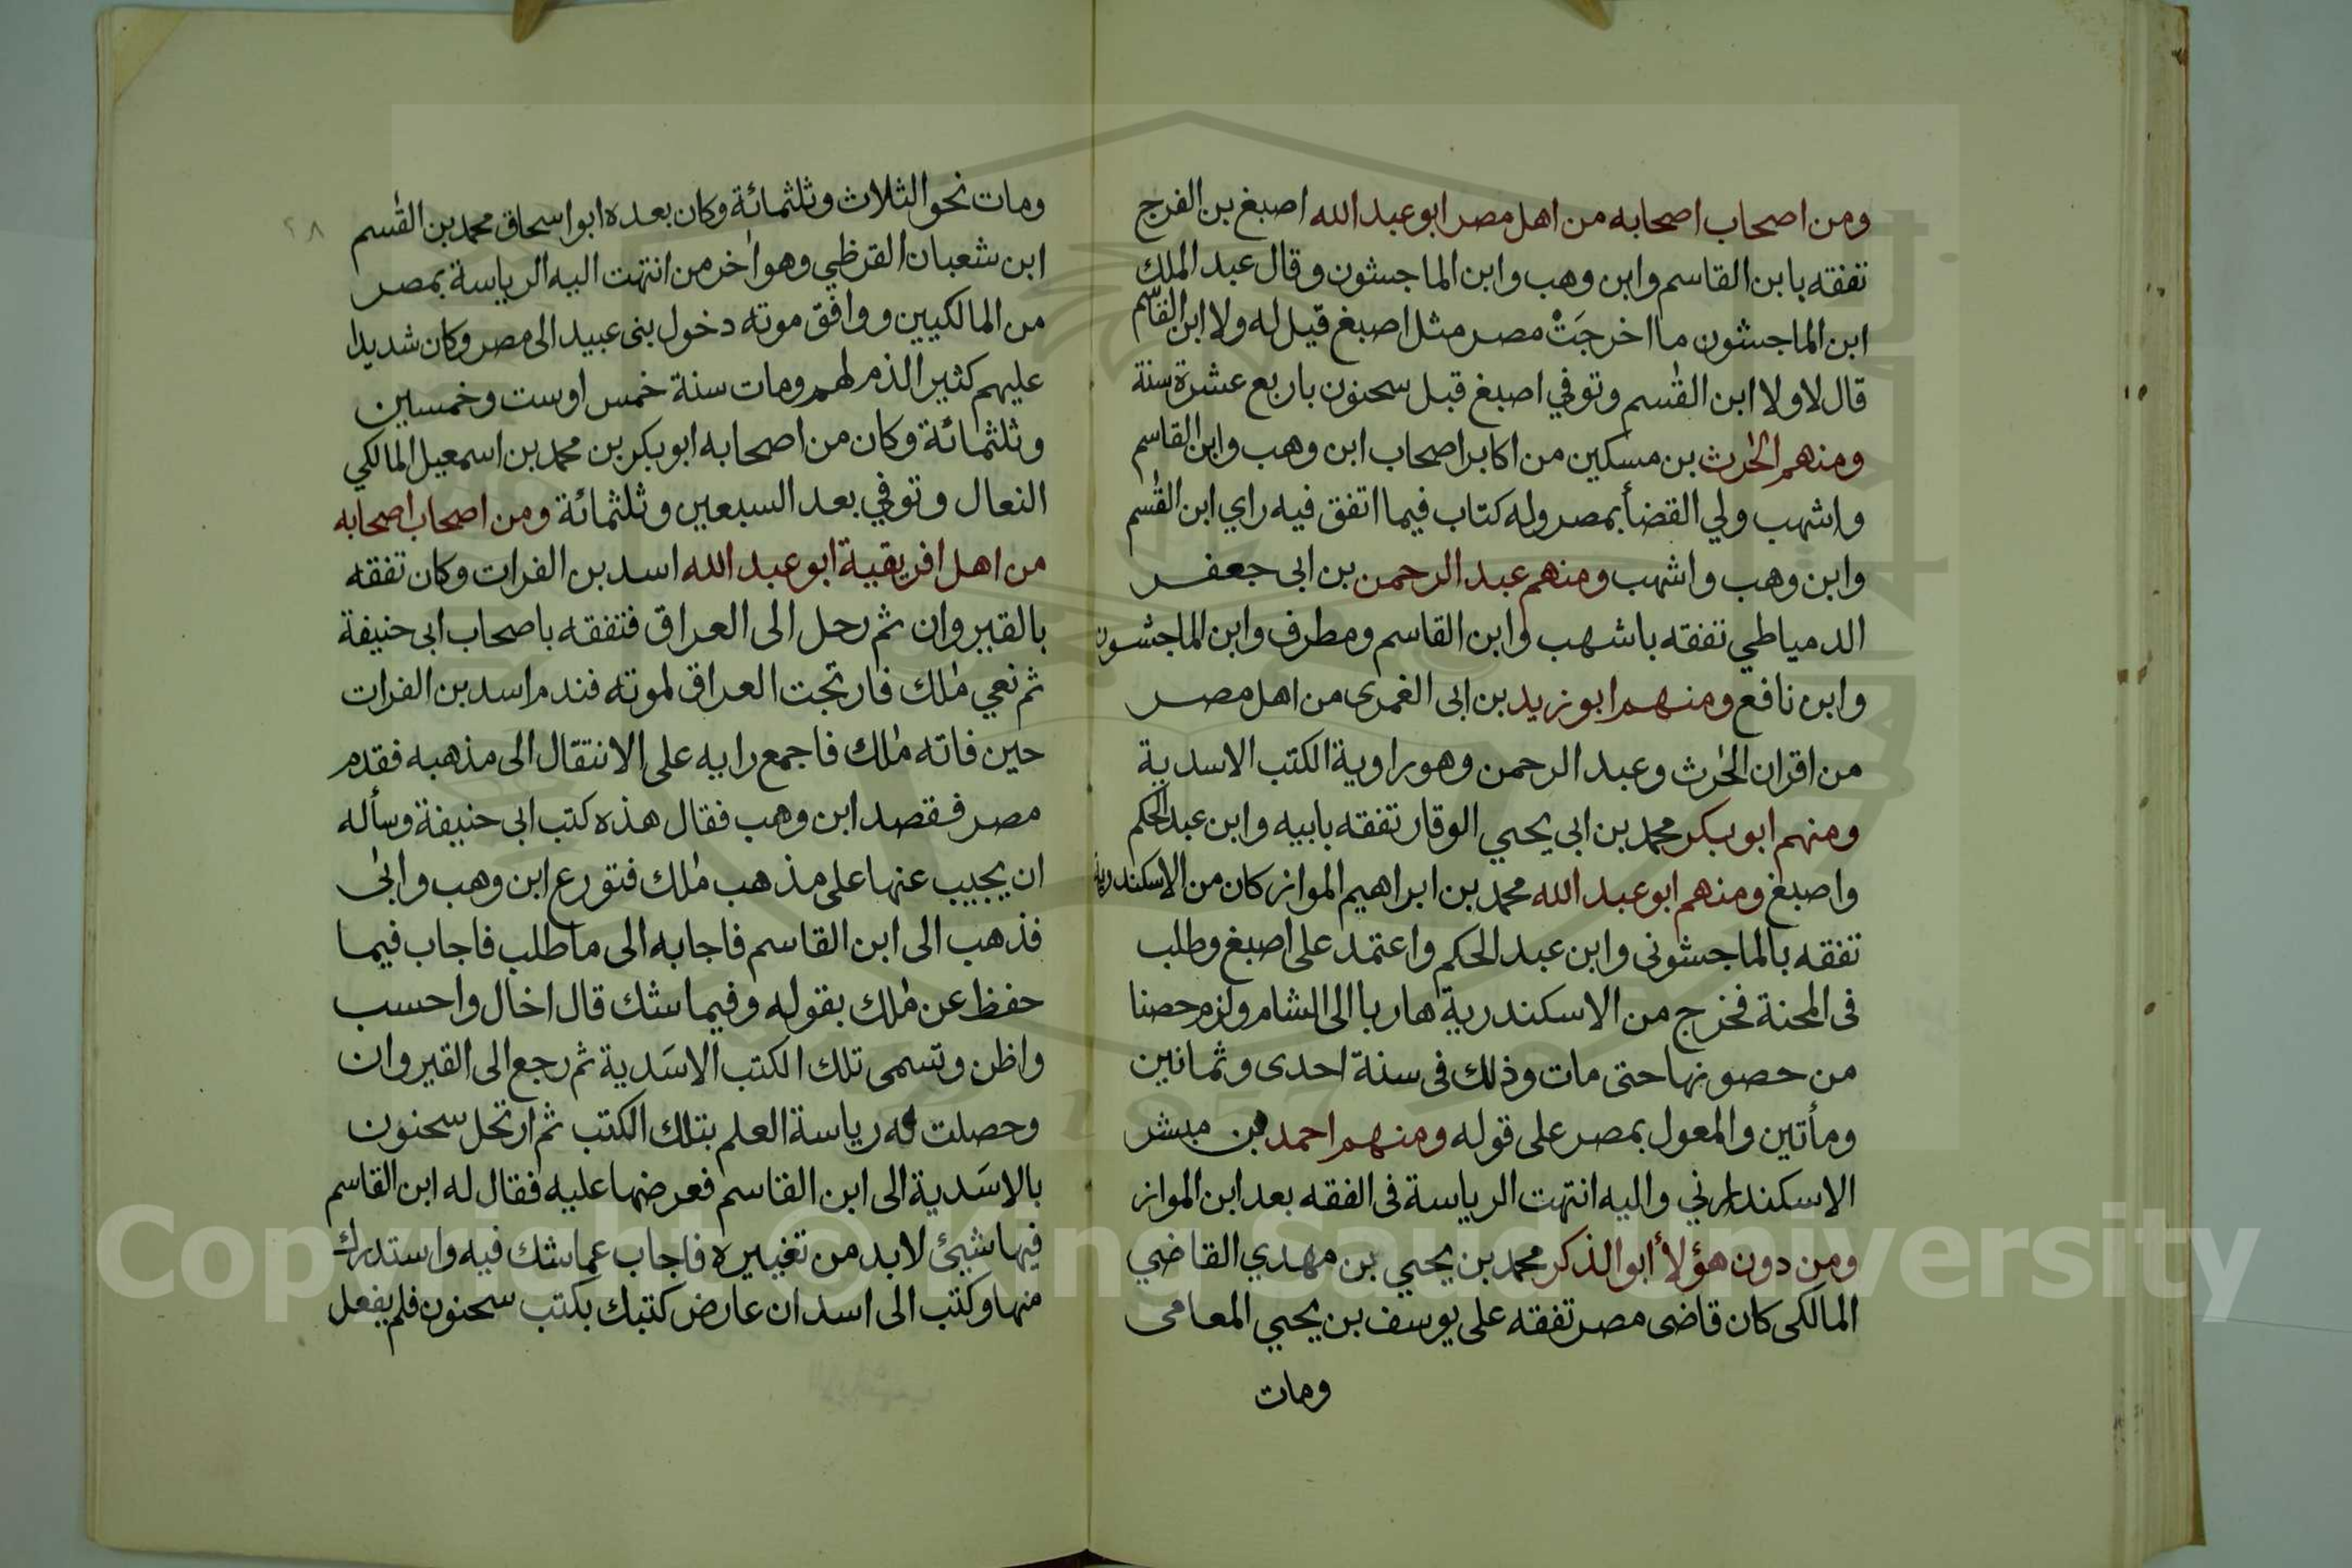 ومن اصحاب اصحابه من اهل مصر ابو عبد الله اصبغ بن الفرج
تفقه بابن القاسم وابن وهب وابن الماجشون وقال عبد الملك
ابن الماجشون ما اخرجَتْ مصر مثل اصبغ قيل له ولا ابن القاسم
قال لا ولا ابن القٰسم وتوفي اصبغ قبل سحنون باربع عشرة سنة
ومنهم الحٰرث بن مسكين من اكابر اصحاب ابن وهب وابن القاسم
واشهب ولي القضأ بمصر وله كتاب فيما اتفق فيه راي ابن القٰسم
وابن وهب واشهب ومنهم عبد الرحمن بن ابى جعفر
الدمياطي تفقه باشهب وابن القاسم ومطرف وابن الماجشون
وابن نافع ومنهم ابو زيد بن ابى الغمرى من اهل مصر
من اقران الحٰرث وعبد الرحمن وهو راوية الكتب الاسدية
ومنهم ابو بكر محمد بن ابى يحيي الوقار تفقه بابيه وابن عبد الحكم
واصبغ ومنهم ابو عبد الله محمد بن ابراهيم المواز كان من الاسكندرية
تفقه بالماجشونى وابن عبد الحكم واعتمد على اصبغ وطلب
فى المحنة فخرج من الاسكندرية هاربا الى الشام ولزم حصنا
من حصونها حتى مات وذلك فى سنة احدى وثمانين
ومأتين والمعول بمصر على قوله ومنهم احمد بن مبشر
الاسكندراني واليه انتهت الرياسة فى الفقه بعد ابن المواز
ومن دون هؤلأ ابو الذكر محمد بن يحيي بن مهدي القاضي
المالكى كان قاضى مصر تفقه على يوسف بن يحيي المعامى
ومات
٢٨
ومات نحو الثلاث وثلثمائة وكان بعده ابو اسحاق محمد بن القٰسم
ابن شعبان القرظي وهو اٰخر من انتهت اليه الرياسة بمصر
من المالكيين ووافق موته دخول بنى عبيد الى مصر وكان شديدا
عليهم كثير الذم لهم ومات سنة خمس او ست وخمسين
وثلثمائة وكان من اصحابه ابو بكر بن محمد بن اسمعيل المالكي
النعال وتوفي بعد السبعين وثلثمائة ومن اصحاب اصحابه
من اهل افريقية ابو عبد الله اسد بن الفرات وكان تفقه
بالقيروان ثم رحل الى العراق فتفقه باصحاب ابى حنيفة
ثم نعي مٰلك فارتجت العراق لموته فندم اسد بن الفرات
حين فاته مٰلك فاجمع رايه على الانتقال الى مذهبه فقدم
مصر فقصد ابن وهب فقال هذه كتب ابى حنيفة وسأله
ان يجيب عنها على مذهب مٰلك فتورع ابن وهب وابٰى
فذهب الى ابن القاسم فاجابه الى ما طلب فاجاب فيما
حفظ عن مٰلك بقوله وفيما شك قال اخال واحسب
واظن وتسمى تلك الكتب الاسَدية ثم رجع الى القيروان
وحصلت له رياسة العلم بتلك الكتب ثم ارتحل سحنون
بالاسَدية الى ابن القاسم فعرضها عليه فقال له ابن القاسم
فيها شيئ لا بد من تغييره فاجاب عما شك فيه واستدرك
منها وكتب الى اسد ان عارض كتبك بكتب سحنون فلم يفعل
Copyright © King Saud University
1957